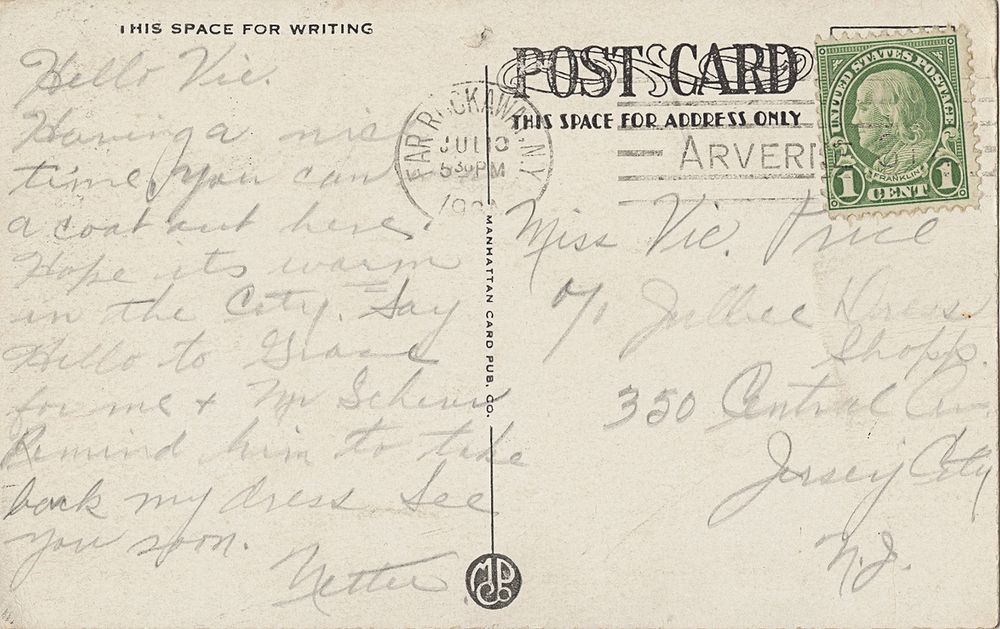 THIS SPACE FOR WRITING
Hello Vic.
Having a nice
time. You can
a coat out here.
Hope its warm
in the City. Say
Hello to Grace
for me + Mr
Remind him to take
back my dress See
you soon.
Nettie
POST CARD
THIS SPACE FOR ADDRESS ONLY
FAR ROCKAWAY N.Y.
JUL
5 30 PM
ARVERN
UNITED STATES POSTAGE
FRANKLIN
1 CENT 1
Miss Vic. Price
c/o Dress
Shopp.
350 Central Av.
Jersey City
N.J.
MANHATTAN CARD PUB. CO.